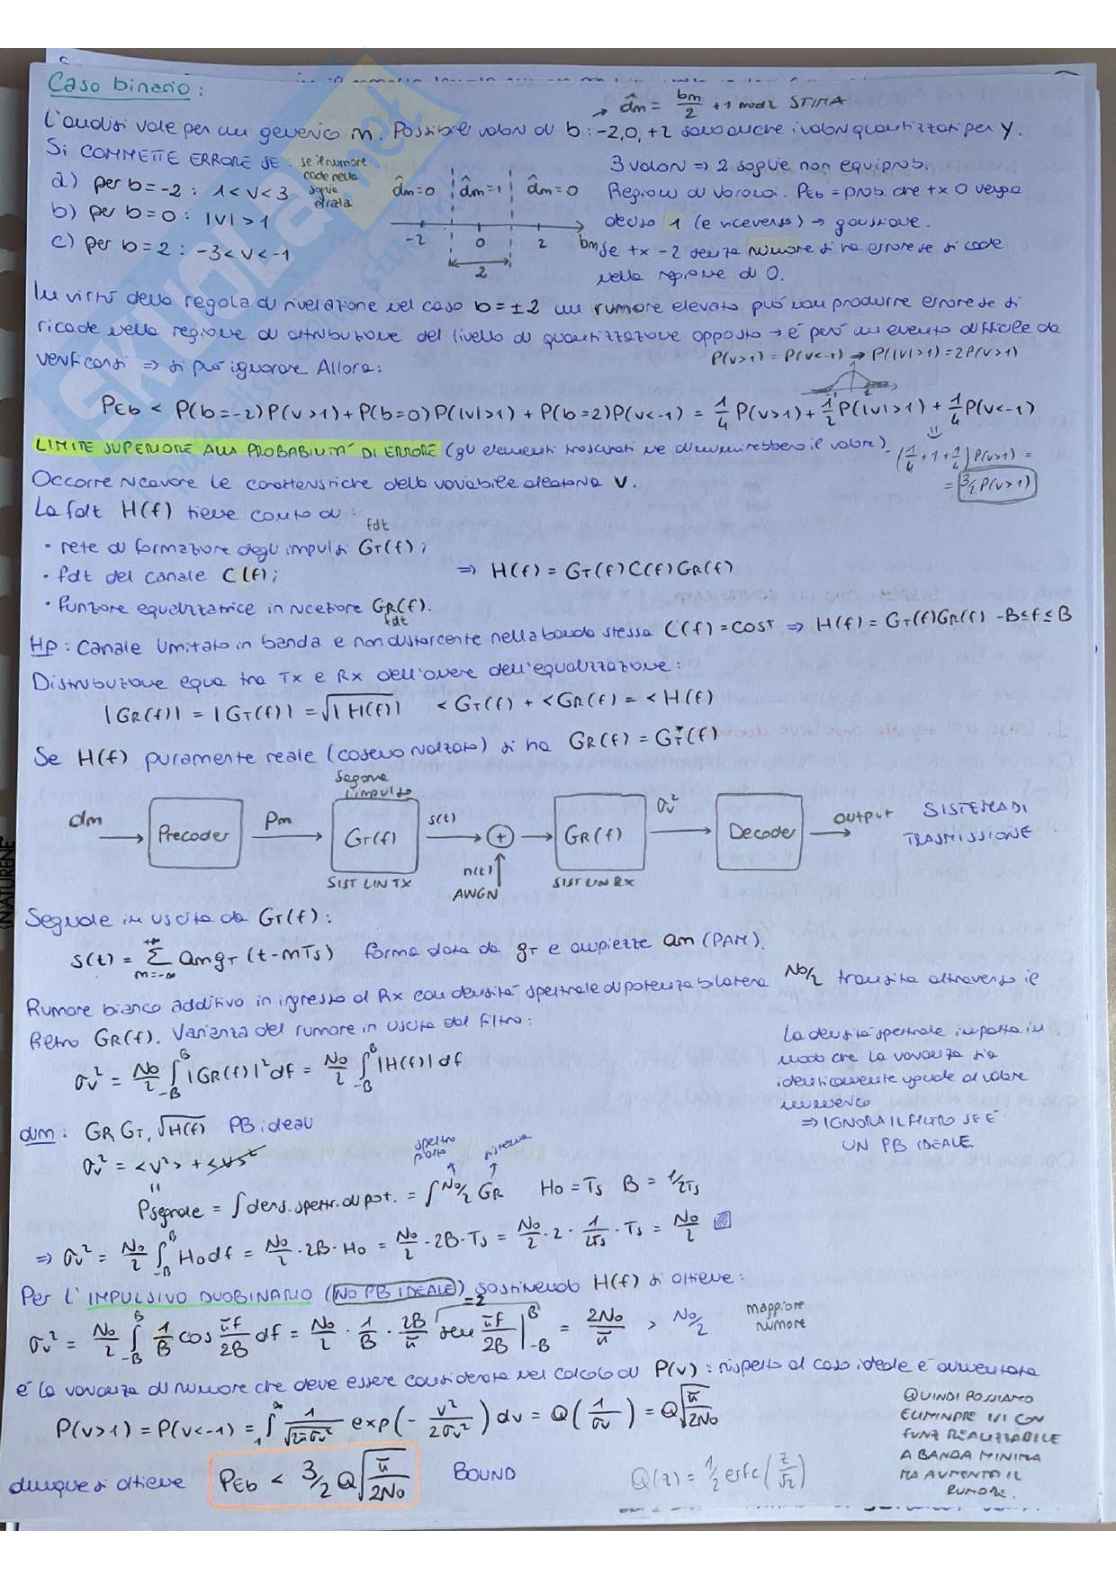 Caso binario:
→ d̂m = bm/2 + 1 mod 2 STIMA
L'analisi vale per un generico m. Possibili valori di b: -2,0,+2 sono anche i valori quantizzati per Y.
Si COMMETTE ERRORE SE: se il rumore cade nella soglia errata
a) per b=-2 : 1<V<3
b) per b=0 : |V|>1
c) per b=2 : -3<V<-1
d̂m=0 d̂m=1 d̂m=0
-2 0 2 bm
2
3 valori ⇒ 2 soglie non equiprob.
Regioni di Voronoi. PEb = prob che tx 0 venga
deciso 1 (e viceversa) → gaussiane.
Se tx -2 senza rumore si ha errore se si cade
nella regione di 0.
In virtù della regola di rivelazione nel caso b=±2 un rumore elevato può non produrre errore se si
ricade nella regione di attribuzione del livello di quantizzazione opposto → è però un evento difficile da
verificarsi ⇒ si può ignorare. Allora:
P(V>1) = P(V<-1) → P(|V|>1) = 2P(V>1)
PEb < P(b=-2)P(V>1) + P(b=0)P(|V|>1) + P(b=2)P(V<-1) = 1/4 P(V>1) + 1/2 P(|V|>1) + 1/4 P(V<-1)
LIMITE SUPERIORE ALLA PROBABILITA' DI ERRORE (gli elementi trascurati ne diminuirebbero il valore).
(1/4+1+1/4) P(V>1) =
= 3/2 P(V>1)
Occorre ricavare le caratteristiche della variabile aleatoria V.
La fdt H(f) tiene conto di:
fdt
• rete di formazione degli impulsi GT(f);
• fdt del canale C(f);
⇒ H(f) = GT(f)C(f)GR(f)
• funzione equalizzatrice in ricezione GR(f).
fdt
Hp: Canale limitato in banda e non distorcente nella banda stessa C(f)=COST ⇒ H(f) = GT(f)GR(f) -B≤f≤B
Distribuzione equa tra Tx e Rx dell'onere dell'equalizzazione:
|GR(f)| = |GT(f)| = √|H(f)| <GT(f) + <GR(f) = <H(f)
Se H(f) puramente reale (coseno rialzato) si ha GR(f) = GT*(f)
Sagoma l'impulso
dm Precoder Pm GT(f) s(t) + GR(f) σv² Decoder OUTPUT
SISTEMA DI
TRASMISSIONE
SIST LIN TX n(t) AWGN SIST LIN RX
Segnale in uscita da GT(f):
s(t) = Σ am gT (t-mTs) forma data da gT e ampiezze am (PAM).
m=-∞ +∞
Rumore bianco additivo in ingresso al Rx con densità spettrale di potenza bilatera N0/2 transita attraverso il
filtro GR(f). Varianza del rumore in uscita dal filtro:
σv² = N0/2 ∫-B^B |GR(f)|² df = N0/2 ∫-B^B |H(f)| df
La densità spettrale importa in
modo che la varianza sia
identicamente uguale al valore
numerico
⇒ IGNORA IL FILTRO SE È
UN PB IDEALE
dim: GR GT, √H(f) PB ideali
spettro piatto sistema
σv² = <V²> + <V>²
Psegnale = ∫dens.spettr.di pot. = ∫N0/2 GR H0 = Ts B = 1/2Ts
⇒ σv² = N0/2 ∫-B^B H0 df = N0/2 · 2B · H0 = N0/2 · 2B · Ts = N0/2 · 2 · 1/2Ts · Ts = N0/2
Per l'IMPULSIVO DUOBINARIO (NO PB IDEALE) sostituendo H(f) si ottiene:
=2
σv² = N0/2 ∫-B^B 1/B cos πf/2B df = N0/2 · 1/B · 2B/π sen πf/2B |-B^B = 2N0/π > N0/2 maggiore rumore
è la varianza di rumore che deve essere considerata nel calcolo di P(v): rispetto al caso ideale è aumentata
P(V>1) = P(V<-1) = ∫1^∞ 1/√2πσv² exp(- v²/2σv²) dv = Q(1/σv) = Q√π/2N0
QUINDI POSSIAMO
ELIMINARE ISI CON
FUNZ REALIZZABILE
A BANDA MINIMA
MA AUMENTA IL
RUMORE.
dunque si ottiene PEb < 3/2 Q√π/2N0 BOUND
Q(z) = 1/2 erfc(z/√2)